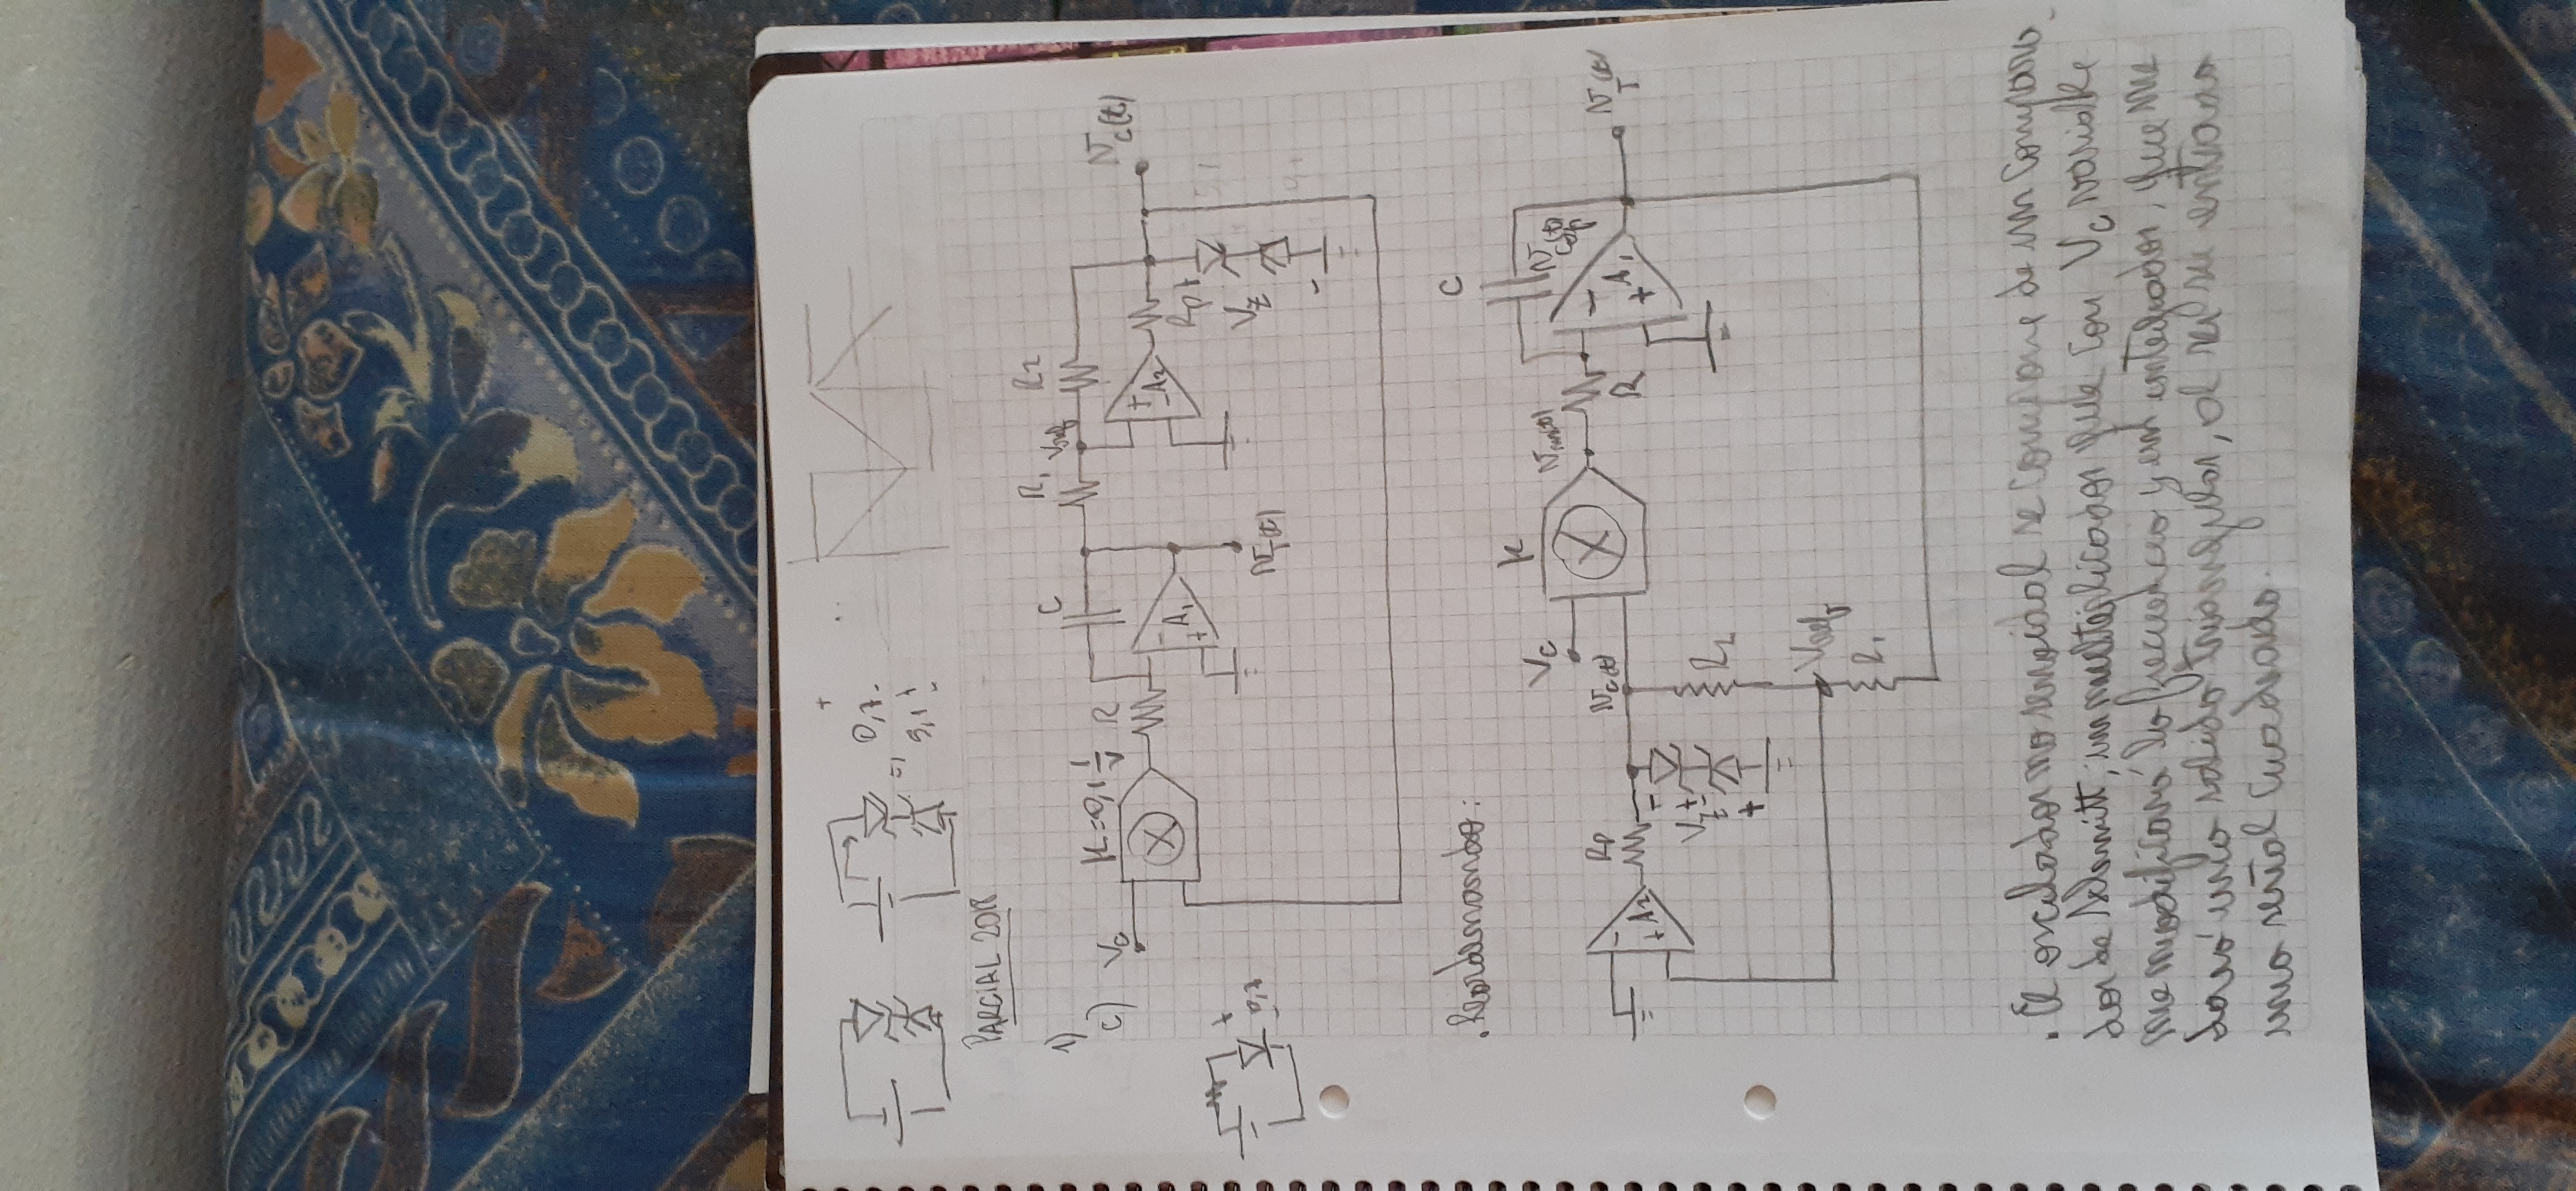 +
0,7 -
5,1 +
-
PARCIAL 2018
1)
c)
Vc
K=0,1 1/V
R
C
R1
Vref
R2
vc(t)
- A1 +
+ A2 -
Rp +
Vz
-
vT(t)
+
0,7
-
. Reordenando:
C
K
Vc
R
vc(t)
Rp
- + A2
- A1 +
vT(t)
- Vz + - +
R2
Vref
R1
. El oscilador no senoidal se compone de un compara-
dor de Schmitt, un multiplicador que con Vc variable
me modificará la frecuencia y un integrador, que me
dará una salida triangular, al ser su entrada
una señal cuadrada.